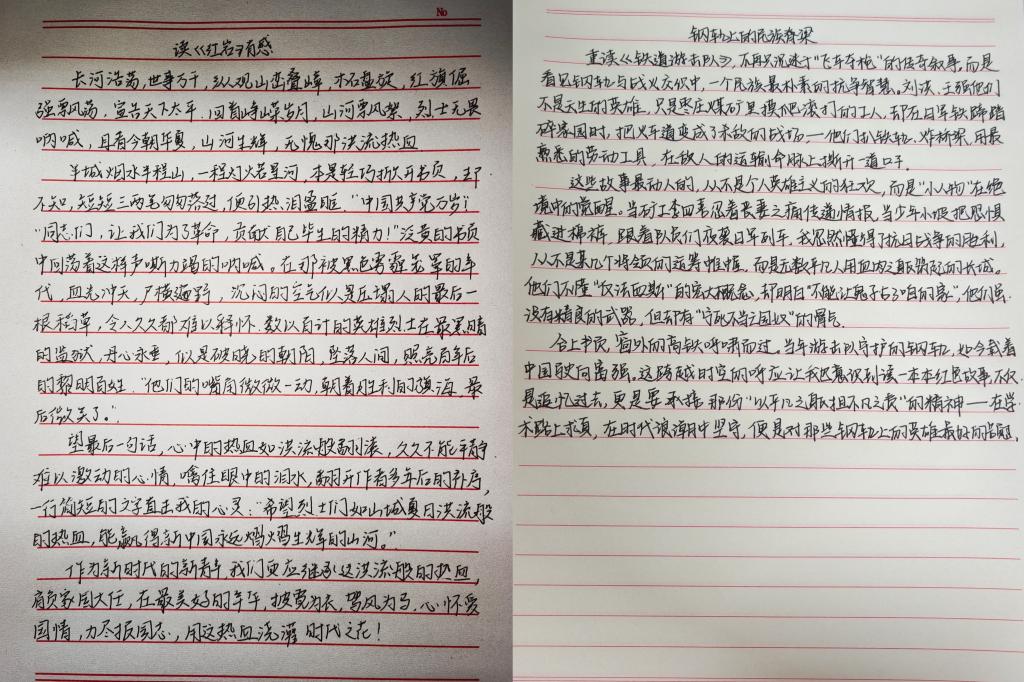 No
读《红岩》有感
长河浩荡,世事万千,纵观山峦叠嶂,木石盘旋,红旗倔
强飘风荡,宣告天下太平,回首峥嵘岁月,山河飘风絮,烈士无畏
呐喊,且看今朝华夏,山河生辉,无愧那洪流热血
羊城烟水半程山,一程灯火若星河,本是轻巧拆开书页,却
不知,短短三两笔匆匆落过,便引热泪盈眶.“中国共产党万岁!”
“同志们,让我们为了革命,贡献自己毕生的精力!”泛黄的书页
中回荡着这样声嘶力竭的呐喊。在那被黑色雾霾笼罩的年
代,血光冲天,尸横遍野,沉闷的空气似是压塌人的最后一
根稻草,令人久久都难以释怀.数以百计的英雄烈士在最黑暗
的监狱,丹心永垂,似是破晓的朝阳,坠落人间,照亮百年后
的黎明百姓.“他们的嘴角微微一动,朝着胜利的旗海,最
后微笑了。”
望最后一句话,心中的热血如洪流般翻滚,久久不能平静
难以激动的心情,噙住眼中的泪水,翻开作者多年后的补序,
一行简短的文字直击我的心灵:“希望烈士们如山城夏日洪流般
的热血,能赢得新中国永远熠熠生辉的山河。”
作为新时代的新青年,我们更应继承这洪流般的热血,
肩负家国大任,在最美好的年华,披霓为衣,驾风为马,心怀爱
国情,力尽报国志,用这热血浇灌时代之花!
钢轨上的民族脊梁
重读《铁道游击队》,不再只沉迷于“飞车夺枪”的传奇叙事,而是
看见钢轨与战火交织中,一个民族最朴素的抗争智慧。刘洪、王强他们
不是天生的英雄,只是枣庄煤矿里摸爬滚打的工人,却在日军铁蹄踏
碎家国时,把火车道变成了杀敌的战场——他们扒铁轨、炸桥梁,用最
熟悉的劳动工具,在敌人的运输命脉上撕开一道口子。
这些故事最动人的,从不是个人英雄主义的狂欢,而是“小人物”在绝
境中的觉醒。当矿工李四忍着丧妻之痛传递情报,当少年小坡把恐惧
藏进棉裤,跟着队员们夜袭日军列车,我忽然懂得了抗日战争的胜利,
从不是某几个将领的运筹帷幄,而是无数平凡人用血肉之躯筑起的长城。
他们不懂“反法西斯”的宏大概念,却明白“不能让鬼子占了咱的家”,他们虽
没有精良的武器,但却有“宁死不当亡国奴”的骨气.
合上书页,窗外的高铁呼啸而过。当年游击队守护的钢轨,如今载着
中国驶向富强。这跨越时空的呼应让我恍意识到读一本本红色故事,不仅
是追忆过去,更是要承接那份“以平凡之躯担不凡之责”的精神——在学
术路上求真,在时代浪潮中坚守,便是对那些钢轨上的英雄最好的告慰.